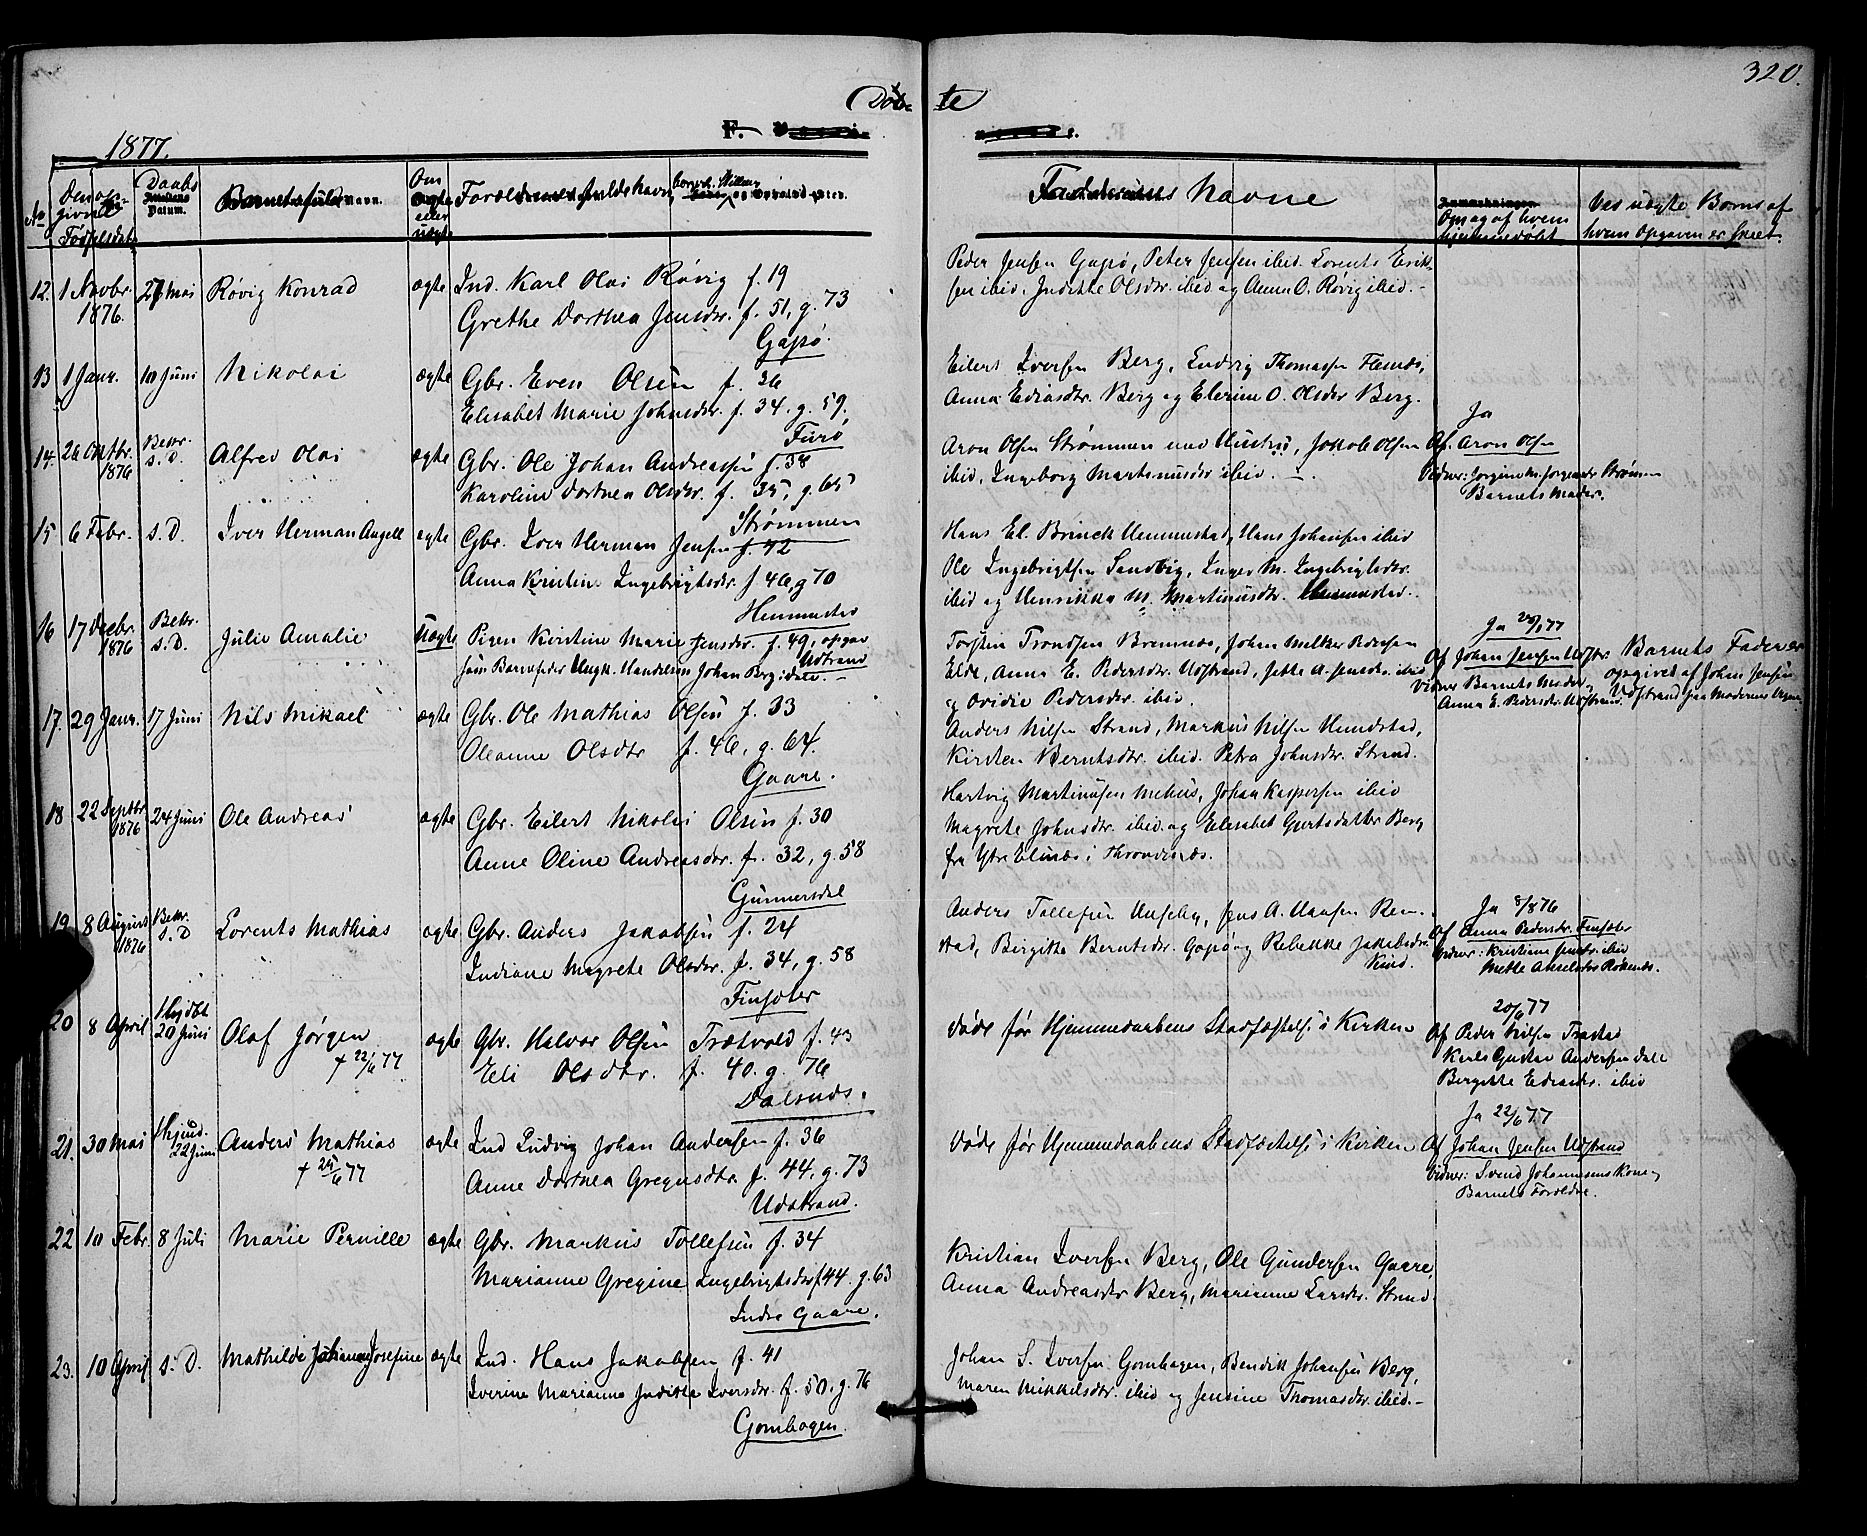 320.
Døbte
F.
1877.
No
Den opgivne Fødselsdatum
Daabs Datum.
Barnets fulde Navn.
Om ægte eller uægte
Forældrenes fulde Navn, borgerl. Stilling og Opholdssted.
Faddernes Navne
Om og af hvem hjemmedøbt
Ved uægte Børns af hvem Opgaven er skeet.
12. 1 Novbr. 27 Mai Røvig Konrad ægte Ind. Karl Olai Røvig f. 19
1876.
Grethe Dorthea Jensdr. f. 51, g. 73
Gapø.
Peder Jensen Gapø, Peter Jensen ibid. Lorents Erik-
sen ibid. Judithe Olsdr. ibid og Anna O. Røvig ibid.
13 1 Janr. 10 Juni Nikolai ægte Gbr. Even Olsen f. 26
Elisabet Marie Johnsdr. f. 34. g. 59.
Furø
Eilert Iversen Berg, Ludvig Thomasen
Anna Ediasdtr. Berg og Elerine O. Olsdr Berg.
14. 26 Oktbr. Bekr. Alfred Olai ægte Gbr. Ole Johan Andreassen f. 38
1876 s. D.
Karoline Dorthea Olsdr. f. 35, g. 65
Strømmen
Aron Olsen Strømmen med Hustru, Jakob Olsen
ibid, Ingeborg Martinusdr ibid.
Ja
Af Aron Olsen
Vidner: Jorgine M. Jorgensdr Strømmen
Barnets Moder.
15 6 Febr. s. D. Iver Herman Angell ægte Gbr. Iver Herman Jensen f. 42
Anna Kristine Ingebrigtsdr. f 46, g 70
Hemmestad
Hans El. Brinck Hemmestad, Hans Johansen ibid
Ole Ingebrigtsen Sandvig, Inger M. Ingebrigtsdr.
ibid og Henrikka M. Martinusdr. Hemmestad.
16 17 Decbr. Bekr. Julie Amalie Uægte Pigen Kirstine Marie Jensdr. f. 49, opgav
1876 s. D.
som Barnefader Ungk. Handelsm Johan Berg idate.
Udstrand
Torsten Trondsen Bremnes, Johan Melker Pedersen
Elde, Anna E. Pedersdr. Udstrand, Jette A. Jensdr. ibid
og Ovidie Pedersdr. ibid.
Ja 28/1 77
Af Johan Jensen Udstr.
Vidner Barnets Moder,
Anna E. Pedersdr. Udstrand.
Barnets Fader er
opgivet af Johan Jensen
Udstrand paa Moderens Vegne
17. 29 Janr. 17 Juni Nils Mikael ægte Gbr. Ole Mathias Olsen f. 33
Oleanne Olsdtr f. 46, g. 64.
Gaare.
Anders Nilsen Strand, Markus Nilsen Hundstad,
Kirsten Berntsdtr. ibid. Petra Johnsdr. Strand.
18 22 Septbr. 24 Juni Ole Andreas ægte Gbr. Eilert Nikolai Olsen f. 30
1876
Anne Oline Andreasdr. f. 32, g. 58
Gunnersdal
Hartvig Martinusen Melius, Johan Kaspersen ibid
Magrete Johnsdr. ibid. og Elisabet Gurtsdatter Berg
fra Ytre Elnæs i Throndenæs.
19 8 August Bekr. Lorents Mathias ægte Gbr. Anders Jakobsen f. 24
1876 s. D
Indiane Magrete Olsdr. f. 34, g. 58
Finsæter
Anders Tollefsen Ungeby, Jens A. Hansen Rem-
stad, Birgitte Berntsdr. Gapø og Rebekke Jakobsdr.
Kind.
Ja 8/8 76
Af Anna Pedersdr. Finsæter
Vidner: Kristiane Jensdr. ibid
Mette Akselsdr Røkenes.
20 8 April Hjdbt Olaf Jørgen ægte Gbr. Halvor Olsen Trætvold f. 43
20 Juni
† 22/6 77
Eli Olsdtr. f. 40. g. 76
Dalsnæs.
Døde før Hjemmedaabens Stadfæstelse i Kirken
20/6 77
Af Peder Nilsen Trastad
Karls Gustav Andersen Dale
Bergitte Edvardsdr. ibid
21. 30 Mai Hjemd. Anders Mathias ægte Ind Ludvig Johan Andersen f. 36
22 Juni
† 24/6 77
Anne Dorthea Gregusdtr f. 44, g. 73
Udstrand.
Døde før Hjemmedaabens Stadfæstelse i Kirken
Ja 22/6 77
Af Johan Jensen Udstrand
Vidner: Svend Johannesens Kone,
Barnets Forældre.
22 10 Febr. 8 Juli Marie Pernille ægte Gbr. Markus Tollefsen f. 34
Marianne Gregine Ingebrigtsdr f 44. g. 63
Indre Gaare.
Kristian Iversen Berg, Ole Gundersen Gaare,
Anna Andreasdr Berg, Marianne Larsdr. Strand.
23. 10 April s. D. Mathilde Johanne Josefine ægte Ind. Hans Jakobsen f. 41
Iverine Marianne Judithe Iversdr. f. 50. g. 76
Gomhogen.
Johan S. Iversen Gomhagen, Bendik Johansen Berg,
Maren Mikkelsdtr. ibid og Jensine Thomasdtr. ibid.